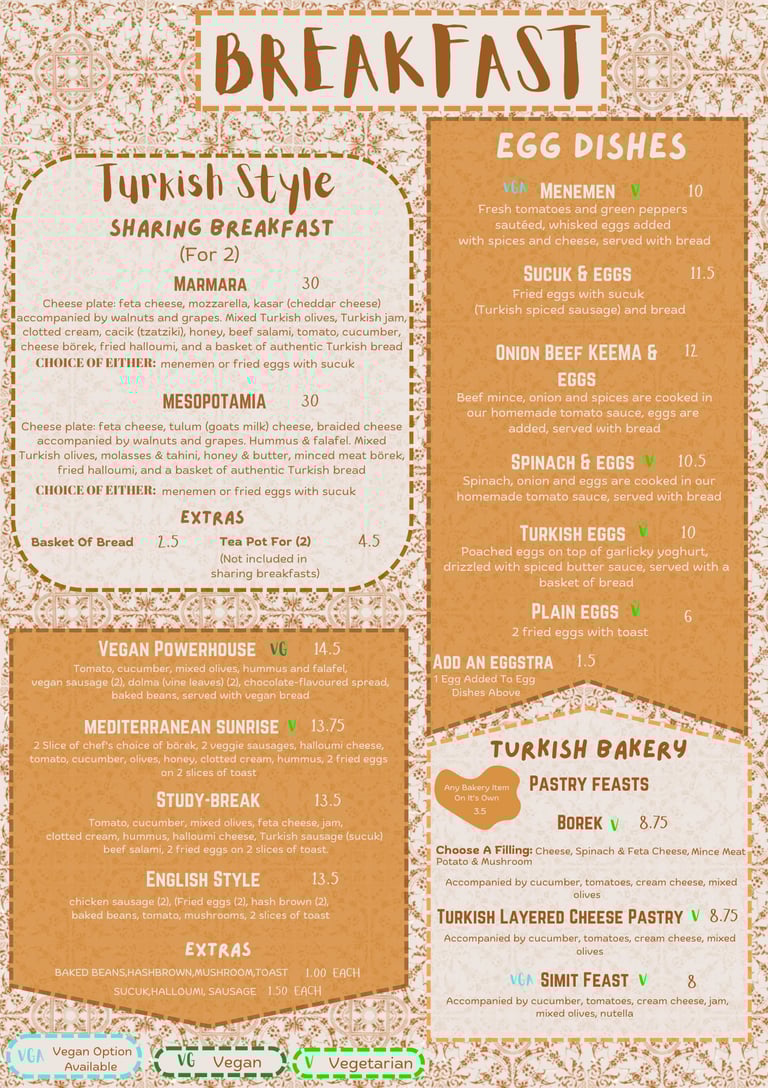 BREAKFAST
Turkish Style
SHARING BREAKFAST
(For 2)
MARMARA 30
Cheese plate: feta cheese, mozzarella, kasar (cheddar cheese)
accompanied by walnuts and grapes. Mixed Turkish olives, Turkish jam,
clotted cream, cacik (tzatziki), honey, beef salami, tomato, cucumber,
cheese börek, fried halloumi, and a basket of authentic Turkish bread
CHOICE OF EITHER: menemen or fried eggs with sucuk
MESOPOTAMIA 30
Cheese plate: feta cheese, tulum (goats milk) cheese, braided cheese
accompanied by walnuts and grapes. Hummus & falafel. Mixed
Turkish olives, molasses & tahini, honey & butter, minced meat börek,
fried halloumi, and a basket of authentic Turkish bread
CHOICE OF EITHER: menemen or fried eggs with sucuk
EXTRAS
Basket Of Bread 2.5 Tea Pot For (2) 4.5
(Not included in
sharing breakfasts)
VEGAN POWERHOUSE VG 14.5
Tomato, cucumber, mixed olives, hummus and falafel,
vegan sausage (2), dolma (vine leaves) (2), chocolate-flavoured spread,
baked beans, served with vegan bread
MEDITERRANEAN SUNRISE V 13.75
2 Slice of chef's choice of börek, 2 veggie sausages, halloumi cheese,
tomato, cucumber, olives, honey, clotted cream, hummus, 2 fried eggs
on 2 slices of toast
STUDY-BREAK 13.5
Tomato, cucumber, mixed olives, feta cheese, jam,
clotted cream, hummus, halloumi cheese, Turkish sausage (sucuk)
beef salami, 2 fried eggs on 2 slices of toast.
ENGLISH STYLE 13.5
chicken sausage (2), (Fried eggs (2), hash brown (2),
baked beans, tomato, mushrooms, 2 slices of toast
EXTRAS
BAKED BEANS,HASHBROWN,MUSHROOM,TOAST 1.00 EACH
SUCUK,HALLOUMI, SAUSAGE 1.50 EACH
EGG DISHES
VGA MENEMEN V 10
Fresh tomatoes and green peppers
sautéed, whisked eggs added
with spices and cheese, served with bread
SUCUK & EGGS 11.5
Fried eggs with sucuk
(Turkish spiced sausage) and bread
ONION BEEF KEEMA & 12
EGGS
Beef mince, onion and spices are cooked in
our homemade tomato sauce, eggs are
added, served with bread
SPINACH & EGGS V 10.5
Spinach, onion and eggs are cooked in our
homemade tomato sauce, served with bread
TURKISH EGGS V 10
Poached eggs on top of garlicky yoghurt,
drizzled with spiced butter sauce, served with a
basket of bread
PLAIN EGGS V 6
2 fried eggs with toast
ADD AN EGGSTRA 1.5
1 Egg Added To Egg
Dishes Above
TURKISH BAKERY
Any Bakery Item
On It's Own
3.5
PASTRY FEASTS
BOREK V 8.75
Choose A Filling: Cheese, Spinach & Feta Cheese, Mince Meat
Potato & Mushroom
Accompanied by cucumber, tomatoes, cream cheese, mixed
olives
TURKISH LAYERED CHEESE PASTRY V 8.75
Accompanied by cucumber, tomatoes, cream cheese, mixed
olives
VGA SIMIT FEAST V 8
Accompanied by cucumber, tomatoes, cream cheese, jam,
mixed olives, nutella
VGA Vegan Option
Available
VG Vegan
V Vegetarian